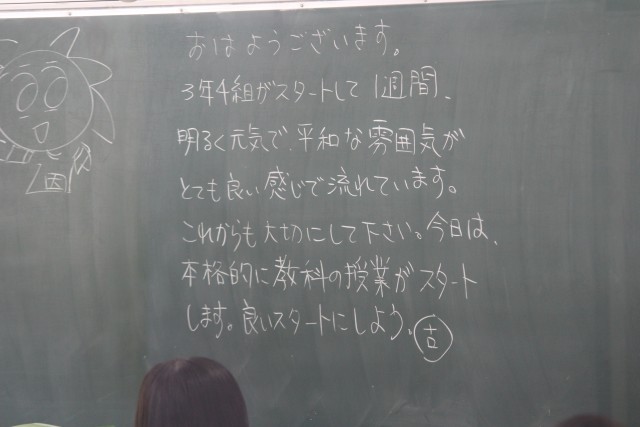 おはようございます。
3年4組がスタートして1週間、
明るく元気で、平和な雰囲気が
とても良い感じで流れています。
これからも大切にして下さい。今日は、
本格的に教科の授業がスタート
します。良いスタートにしよう。吉